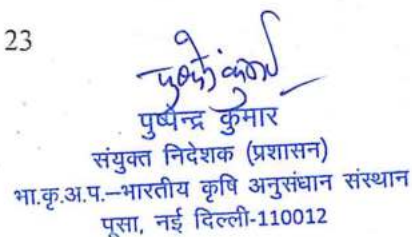 23
पुष्पेन्द्र कुमार
संयुक्त निदेशक (प्रशासन)
भा.कृ.अ.प.–भारतीय कृषि अनुसंधान संस्थान
पूसा, नई दिल्ली-110012